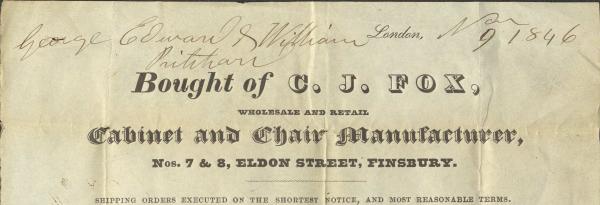 George Edward & William London, Nov 9 1846
Bought of C. J. FOX,
WHOLESALE AND RETAIL
Cabinet and Chair Manufacturer,
Nos. 7 & 8, ELDON STREET, FINSBURY.
SHIPPING ORDERS EXECUTED ON THE SHORTEST NOTICE, AND MOST REASONABLE TERMS.